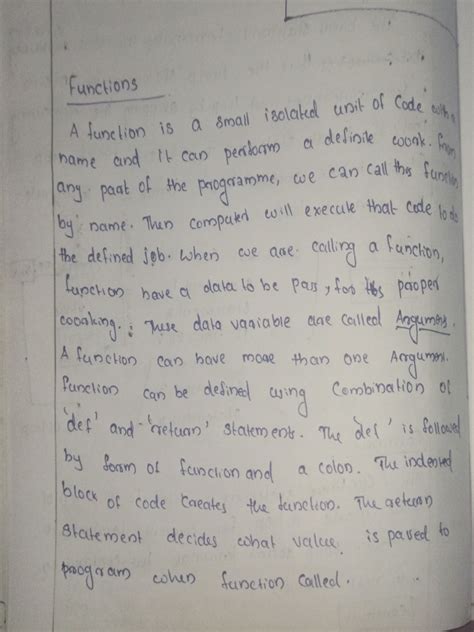 Functions
A function is a small isolated unit of Code with a
name and it can perform a definite work. From
any part of the programme, we can call this function
by name. Then computer will execute that code to do
the defined job. When we are calling a function,
function have a data to be pass, for its proper
working. These data variable are called Argument.
A function can have more than one Argument.
function can be defined using Combination of
'def' and 'return' statements. The 'def' is followed
by form of function and a colon. The indented
block of code Creates the function. The return
Statement decides what value is pased to
program when function called.